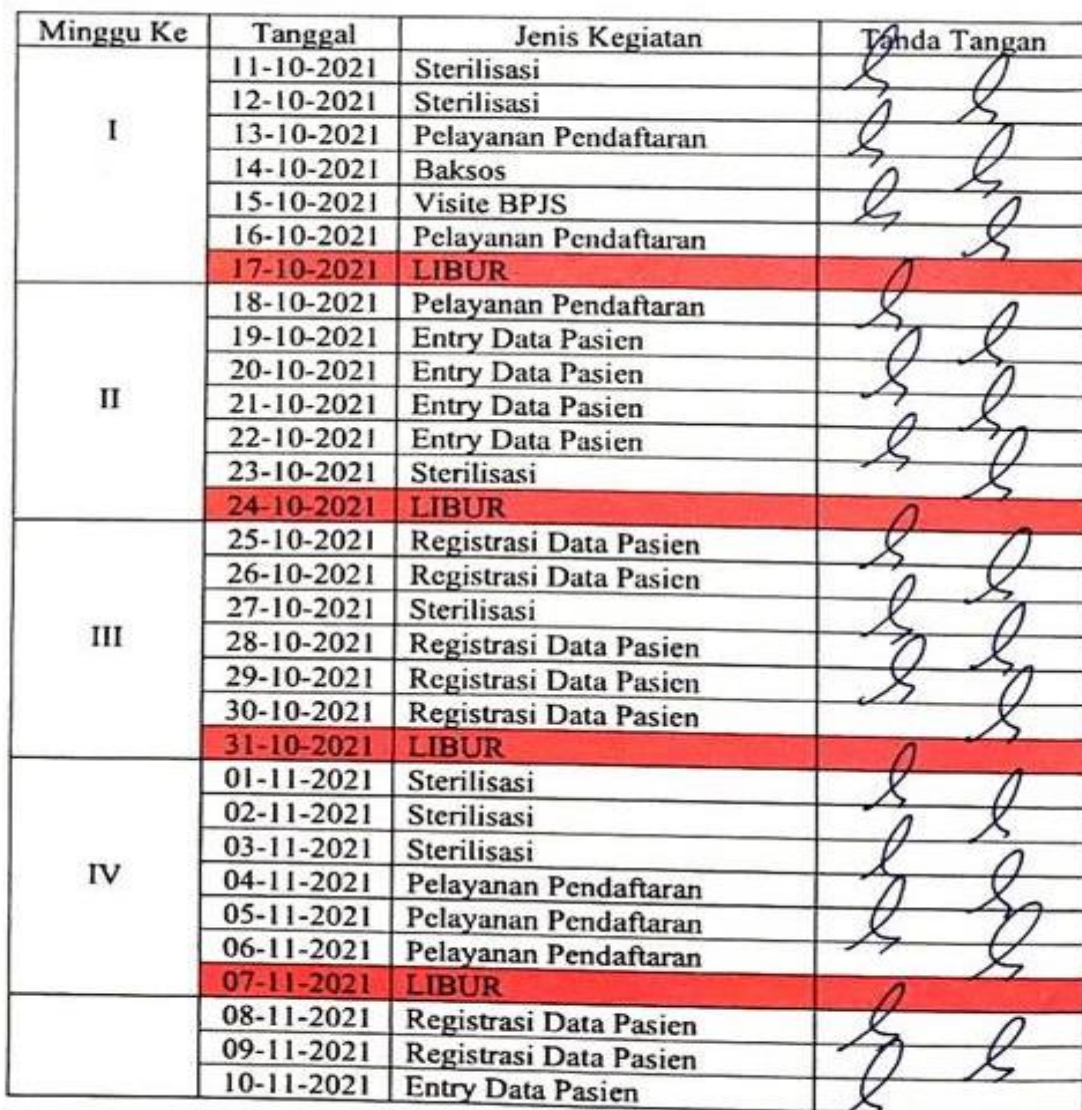 Minggu Ke Tanggal Jenis Kegiatan Tanda Tangan
11-10-2021 Sterilisasi
12-10-2021 Sterilisasi
I 13-10-2021 Pelayanan Pendaftaran
14-10-2021 Baksos
15-10-2021 Visite BPJS
16-10-2021 Pelayanan Pendaftaran
17-10-2021 LIBUR
18-10-2021 Pelayanan Pendaftaran
19-10-2021 Entry Data Pasien
20-10-2021 Entry Data Pasien
II 21-10-2021 Entry Data Pasien
22-10-2021 Entry Data Pasien
23-10-2021 Sterilisasi
24-10-2021 LIBUR
25-10-2021 Registrasi Data Pasien
26-10-2021 Registrasi Data Pasien
27-10-2021 Sterilisasi
III 28-10-2021 Registrasi Data Pasien
29-10-2021 Registrasi Data Pasien
30-10-2021 Registrasi Data Pasien
31-10-2021 LIBUR
01-11-2021 Sterilisasi
02-11-2021 Sterilisasi
03-11-2021 Sterilisasi
IV 04-11-2021 Pelayanan Pendaftaran
05-11-2021 Pelayanan Pendaftaran
06-11-2021 Pelayanan Pendaftaran
07-11-2021 LIBUR
08-11-2021 Registrasi Data Pasien
09-11-2021 Registrasi Data Pasien
10-11-2021 Entry Data Pasien